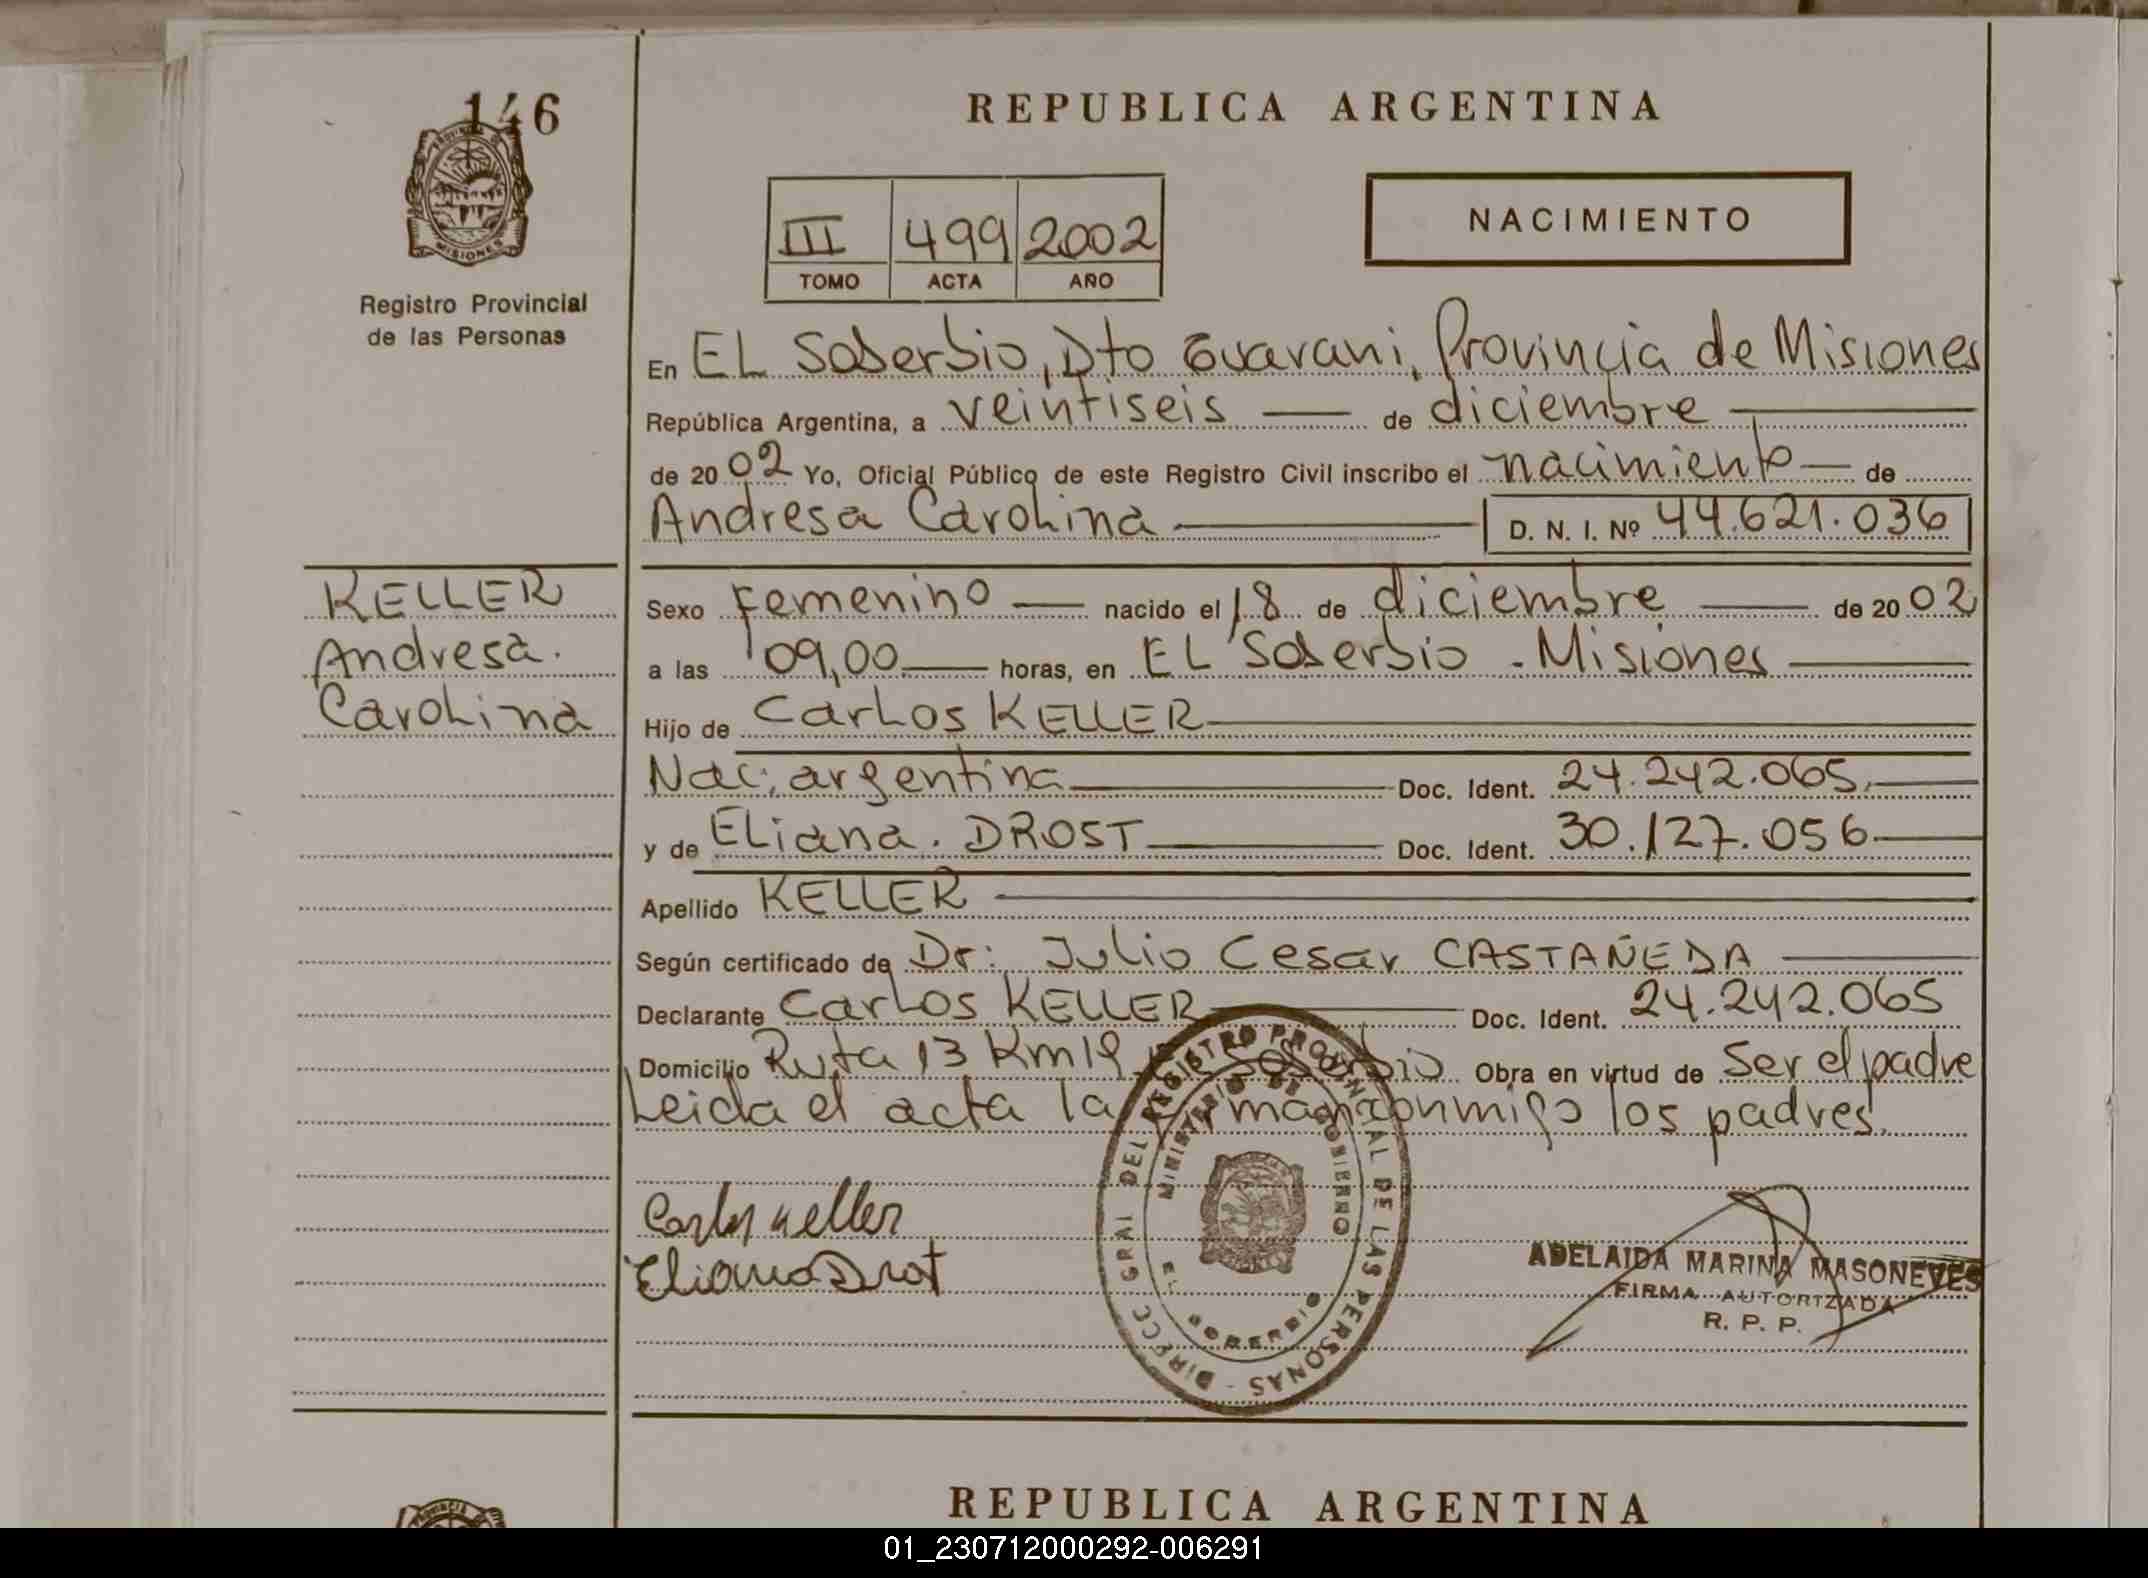 146
REPUBLICA ARGENTINA
PROVINCIA DE
MISIONES
Registro Provincial
de las Personas
III 499 2002
TOMO ACTA AÑO
NACIMIENTO
En EL Soberbio, Dto Guarani, Provincia de Misiones
República Argentina, a veintiseis de diciembre
de 2002 Yo, Oficial Público de este Registro Civil inscribo el nacimiento de
Andresa Carolina D. N. I. Nº 44.621.036
KELLER
Andresa.
Carolina
Sexo Femenino nacido el 18 de diciembre de 2002
a las 09,00 horas, en EL Soberbio - Misiones
Hijo de Carlos KELLER
Nac. argentina Doc. Ident. 24.242.065
y de ELiana. DROST Doc. Ident. 30.127.056
Apellido KELLER
Según certificado de Dr: Julio Cesar CASTAÑEDA
Declarante Carlos KELLER Doc. Ident. 24.242.065
Domicilio Ruta 13 Km 19 Soberbio Obra en virtud de Ser el padre
Leida el acta la firman conmigo los padres.
Carlos Keller
Eliana Drost
DIRECC GRAL DEL REGISTRO PROVINCIAL DE LAS PERSONAS -
MINISTERIO DE GOBIERNO
EL SOBERBIO
ADELAIDA MARINA MASONEVES
FIRMA AUTORIZADA
R. P. P.
REPUBLICA ARGENTINA
01_230712000292-006291